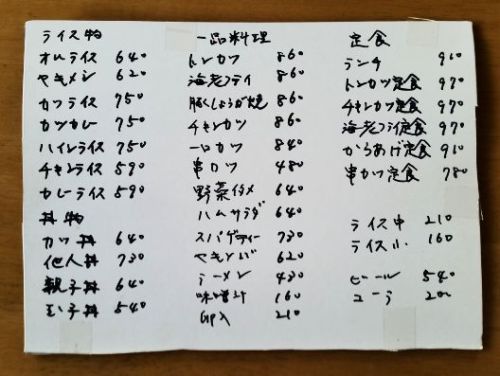 ライス物
オムライス 640
ヤキメシ 620
カツライス 750
カツカレー 750
ハイシライス 750
チキンライス 590
カレーライス 590
丼物
カツ丼 640
他人丼 730
親子丼 640
玉子丼 540
一品料理
トンカツ 860
海老フライ 860
豚しょうが焼 860
チキンカツ 860
一口カツ 840
串カツ 480
野菜イタメ 640
ハムサラダ 640
スパゲティー 730
ヤキソバ 620
ラーメン 430
味噌汁 160
210
定食
ランチ 910
トンカツ定食 970
チキンカツ定食 970
海老フライ定食 970
からあげ定食 910
串カツ定食 780
ライス中 210
ライス小 160
ビール 540
コーラ 200